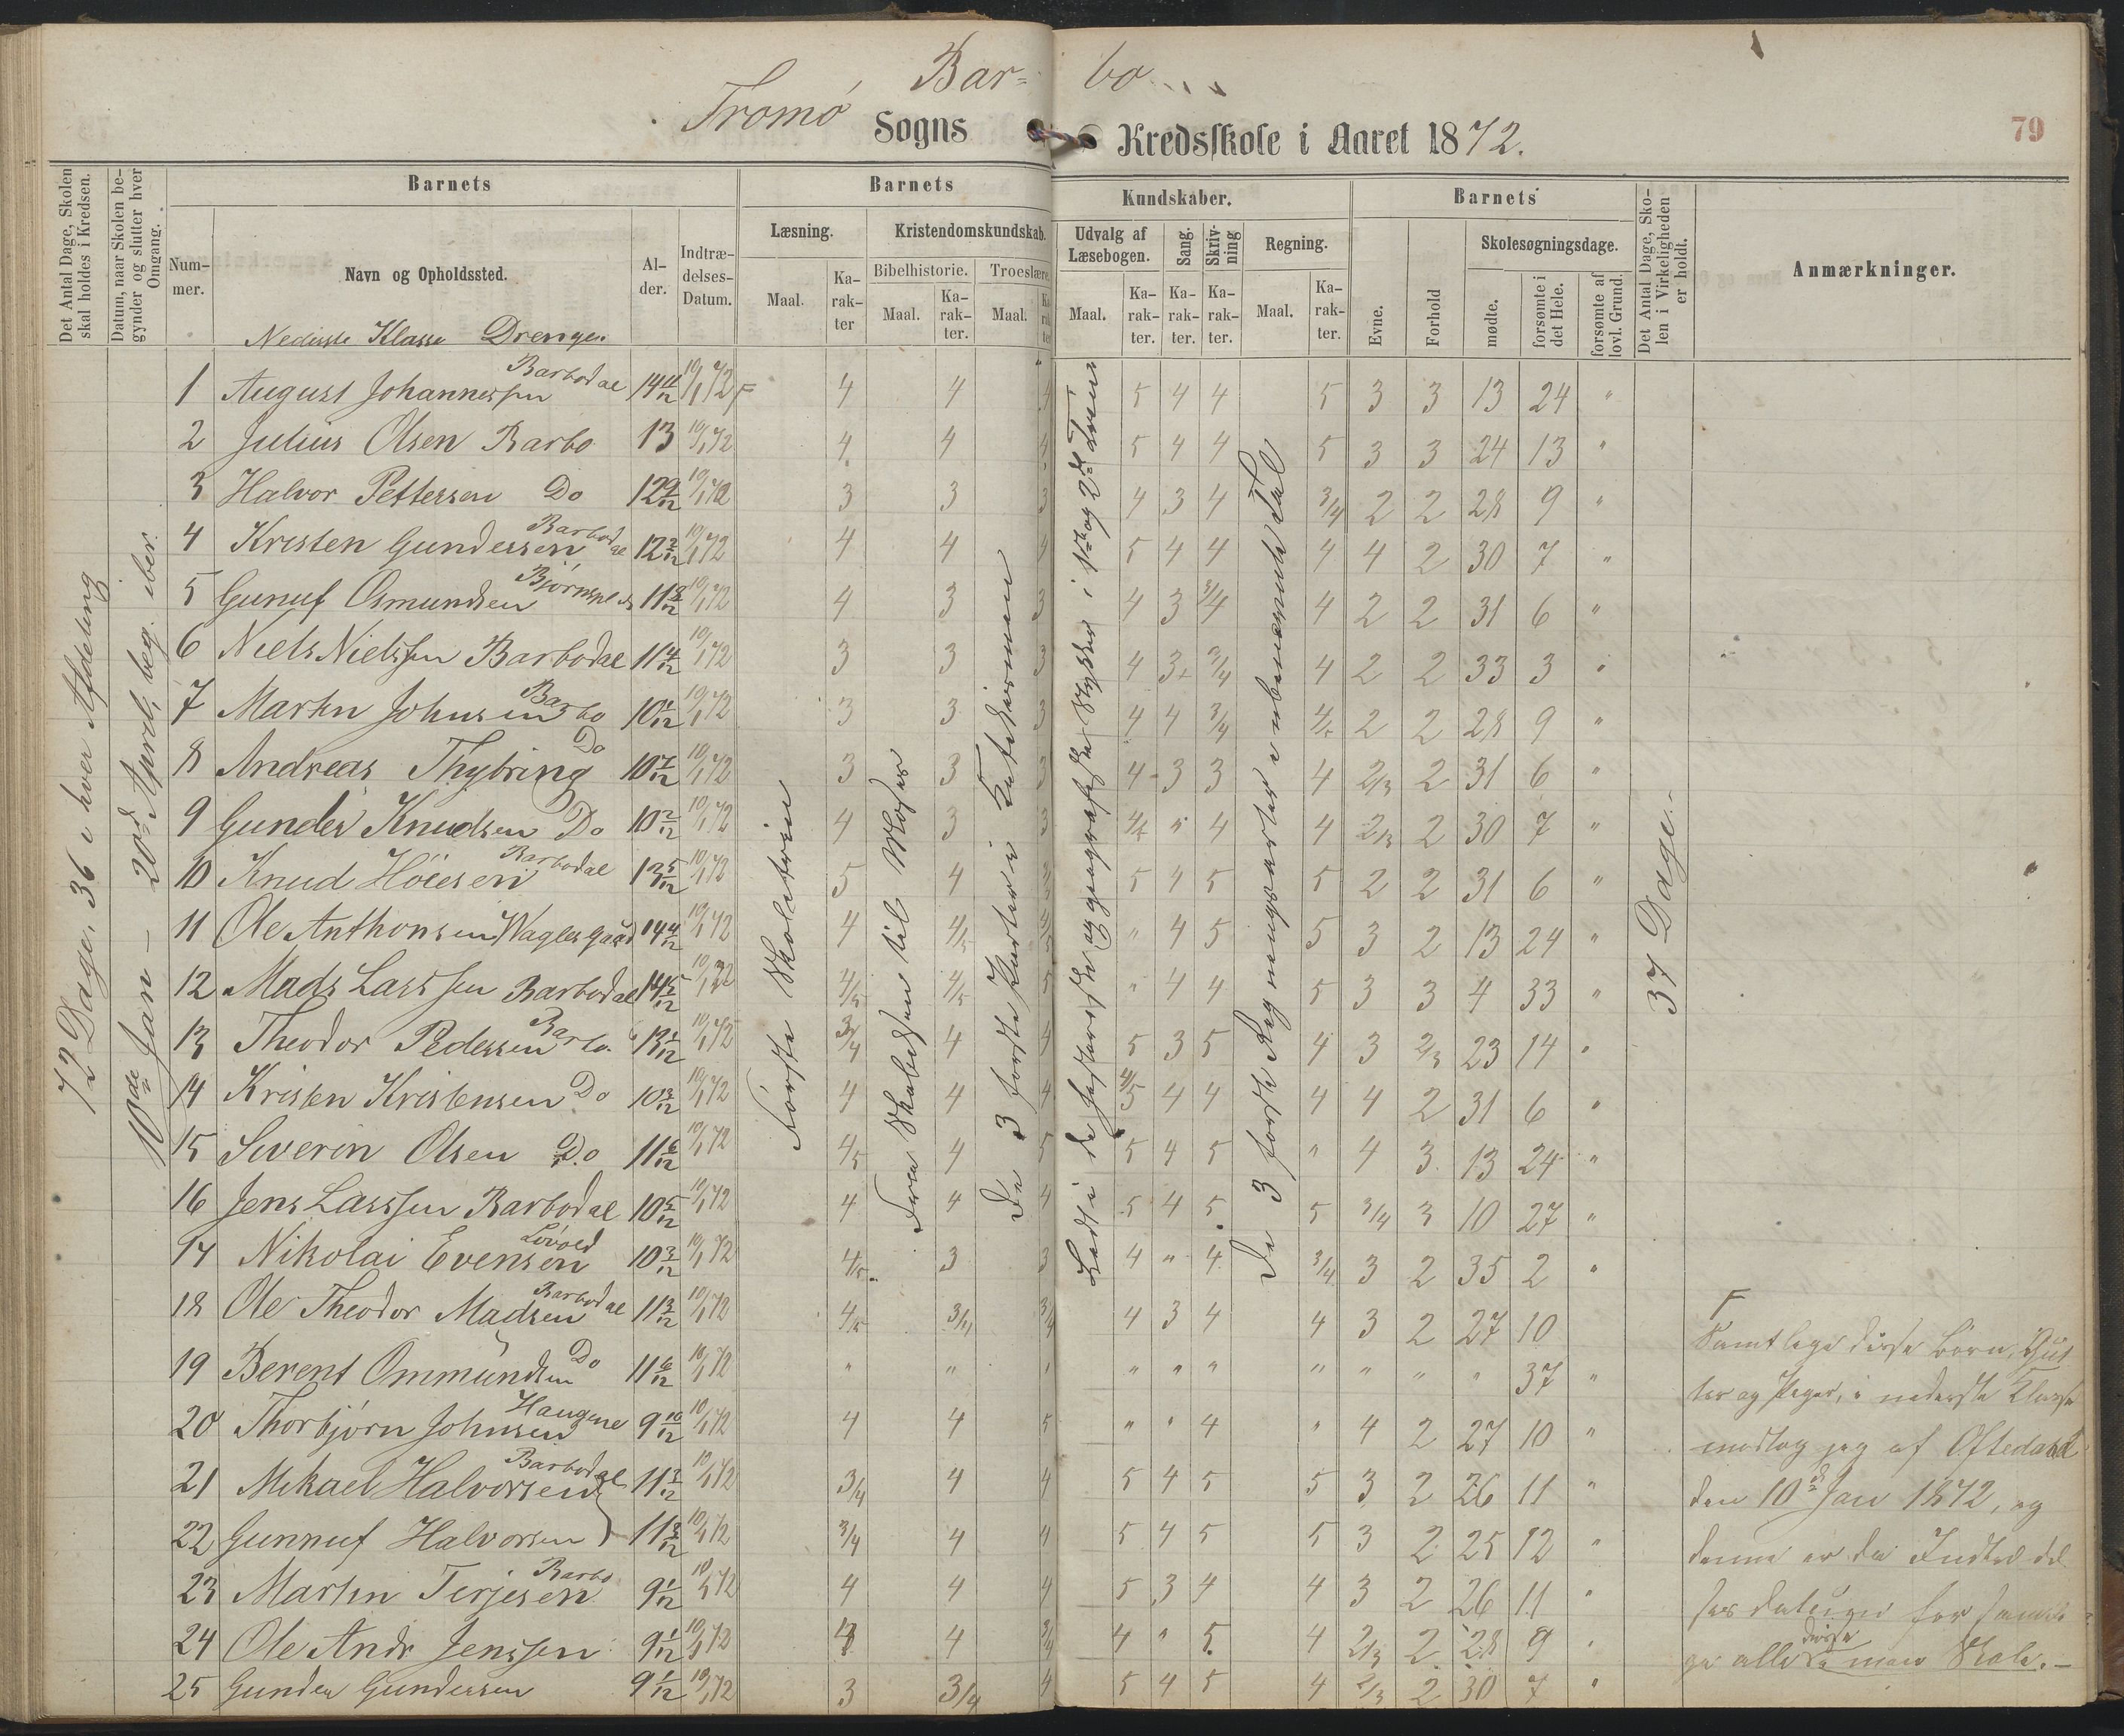 Bar= bo
Tromø Sogns Kredsskole i Aaret 1872.
79
Det Antal Dage, Skolen skal holdes i Kredsen.
Datum, naar Skolen begynder og slutter hver Omgang.
Barnets
Nummer.
Navn og Opholdssted.
Alder.
Indtrædelses-Datum.
Barnets Kundskaber.
Læsning.
Maal.
Karakter
Kristendomskundskab.
Bibelhistorie.
Maal.
Karakter.
Troeslære.
Maal.
Karakter
Udvalg af Læsebogen.
Maal.
Karakter.
Sang.
Karakter.
Skrivning
Karakter.
Regning.
Maal.
Karakter.
Barnets
Evne.
Forhold
Skolesøgningsdage.
mødte.
forsømte i det Hele.
forsømte af lovl. Grund.
Det Antal Dage, Skolen i Virkeligheden er holdt.
Anmærkninger.
Nederste Klasse Drenge
72 Dage, 36 i hver Afdeling
10de Jan – 20de April, beg. iber.
Første Skoletrin
Fra Skabelsen til Moses
De 3 første Parter i Katekismen
De 3 første Regningsarter i ubenævnte Tal
37 Dage.
1 August Johannessen Barbodal 14 11/12 10/1 72 4 4 4 5 4 4 5 3 3 13 24 "
2 Julius Olsen Barbo 13 10/1 72 4 4 4 5 4 4 5 3 3 24 13 "
3 Halvor Pettersen Do 12 9/12 10/1 72 3 3 3 4 3 4 3/4 2 2 28 9 "
4 Kristen Gundersen Barbodal 12 2/12 10/1 72 4 4 4 5 4 4 4 4 2 30 7 "
5 Gunuf Osmundsen 11 8/12 10/1 72 4 3 3 4 3 3/4 4 2 2 31 6 "
6 Niels Nielssen Barbodal 11 4/12 10/1 72 3 3 3 4 3 3/4 4 2 2 33 3 "
7 Martin Johnsen Barbo 10 1/12 10/1 72 3 3 3 4 4 3/4 2 2 28 9 "
8 Andreas Thybring Do 10 7/12 10/1 72 3 3 3 4 3 3 4 2/3 2 31 6 "
9 Gunder Knudsen Do 10 2/12 10/1 72 4 3 3 4/5 " 4 4 2/3 2 30 7 "
10 Knud Höiesen Barbodal 13 5/12 10/1 72 5 4 5 4 5 5 2 2 31 6 "
11 Ole Anthonsen Waglesgaard 14 4/12 10/1 72 4 4/5 4/5 " 4 5 5 3 2 13 24 "
12 Mads Lassen Barbodal 14 5/12 10/1 72 4/5 4/5 5 " 4 4 5 3 3 4 33 "
13 Theodor Pedersen Barbo 13 1/12 10/1 72 3/4 4 4 5 3 5 4 3 2/3 23 14 "
14 Kristen Kristensen Do 10 3/12 10/1 72 4 4 4 4/5 4 4 4 4 2 31 6 "
15 Severin Olsen Do 11 6/12 10/1 72 4/5 4 5 5 4 5 " 4 3 13 24 "
16 Jens Lassen Barbodal 10 5/12 10/1 72 4 4 4 5 4 5 5 3/4 3 10 27 "
17 Nikolai Evensen Lövold 10 3/12 10/1 72 4/5 3 3 4 " 4 3/4 3 2 35 2 "
18 Ole Theodor Madsen Barbodal 11 3/12 10/1 72 4/5 3/4 3/4 4 3 4 4 3 2 27 10
19 Berent Ommundsen Do 11 6/12 10/1 72 " " " " " " " " " " 37 "
20 Thorbjörn Johnsen Haugene 9 10/12 10/1 72 4 4 5 " " 4 " 4 2 27 10 "
21 Mikael Halvorsen Barbodal 11 3/12 10/1 72 3/4 4 4 5 4 5 5 3 2 26 11 "
22 Gunnuf Halvorsen 11 3/12 10/1 72 3/4 4 4 5 4 5 5 3 2 25 12 "
23 Martin Terjesen Barbo 9 1/12 10/1 72 4 4 4 5 3 4 4 3 2 26 11 "
24 Ole Andr Jenssen 9 1/12 10/1 72 4 3/4 4 " 5 4 2/3 2 28 9 "
25 Gunder Gundersen 9 1/12 10/1 72 3 3/4 4 5 4 5 4 2/3 2 30 7 "
Samtlige disse Börn, Gut
ter og Piger, i nederste Klasse
modtog jeg af Oftedahl
den 10de Jan 1872, og
denne er da Indtrædel
ses datum for samtli=
ge alle disse i min Skole. –